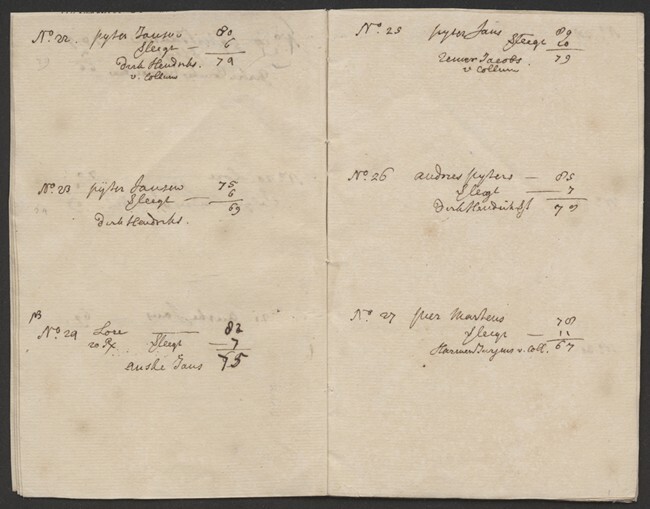 No. 22 pyter Jansen 80
Sleegt - 6
Dirk Hendriks. 74
v. Collum
No. 23 pijter Jansen 75
Sleegt - 6
69
Dirk Hendriks.
NB
No. 24 Lore — 82
Sleegt - 7
Jans 75
No. 25 pyter Jans 89
Sleegt 10
Jacobs 79
v Collum
No. 26 andries pyters - 85
Sleegt - 7
Dirk Hendriks 78
No. 27 pier Martens 78
Sleegt - 11
Harmen Jurjens v. Coll. 67